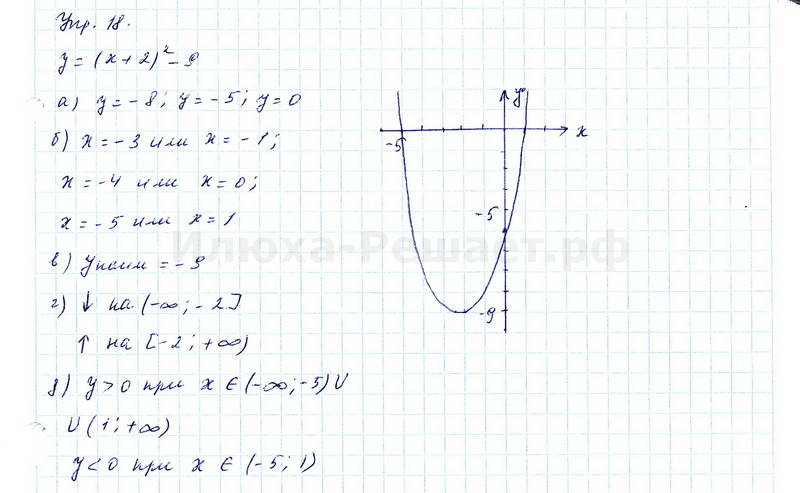 Упр. 18.
y = (x + 2)² - 9
а) y = -8; y = -5; y = 0
б) x = -3 или x = -1;
x = -4 или x = 0;
x = -5 или x = 1
в) yнаим = -9
г) ↓ на (-∞; -2]
↑ на [-2; +∞)
д) y > 0 при x ∈ (-∞; -5) ∪
∪ (1; +∞)
y < 0 при x ∈ (-5; 1)
y
x
-5
-5
-9
Илюха-Решает.рф